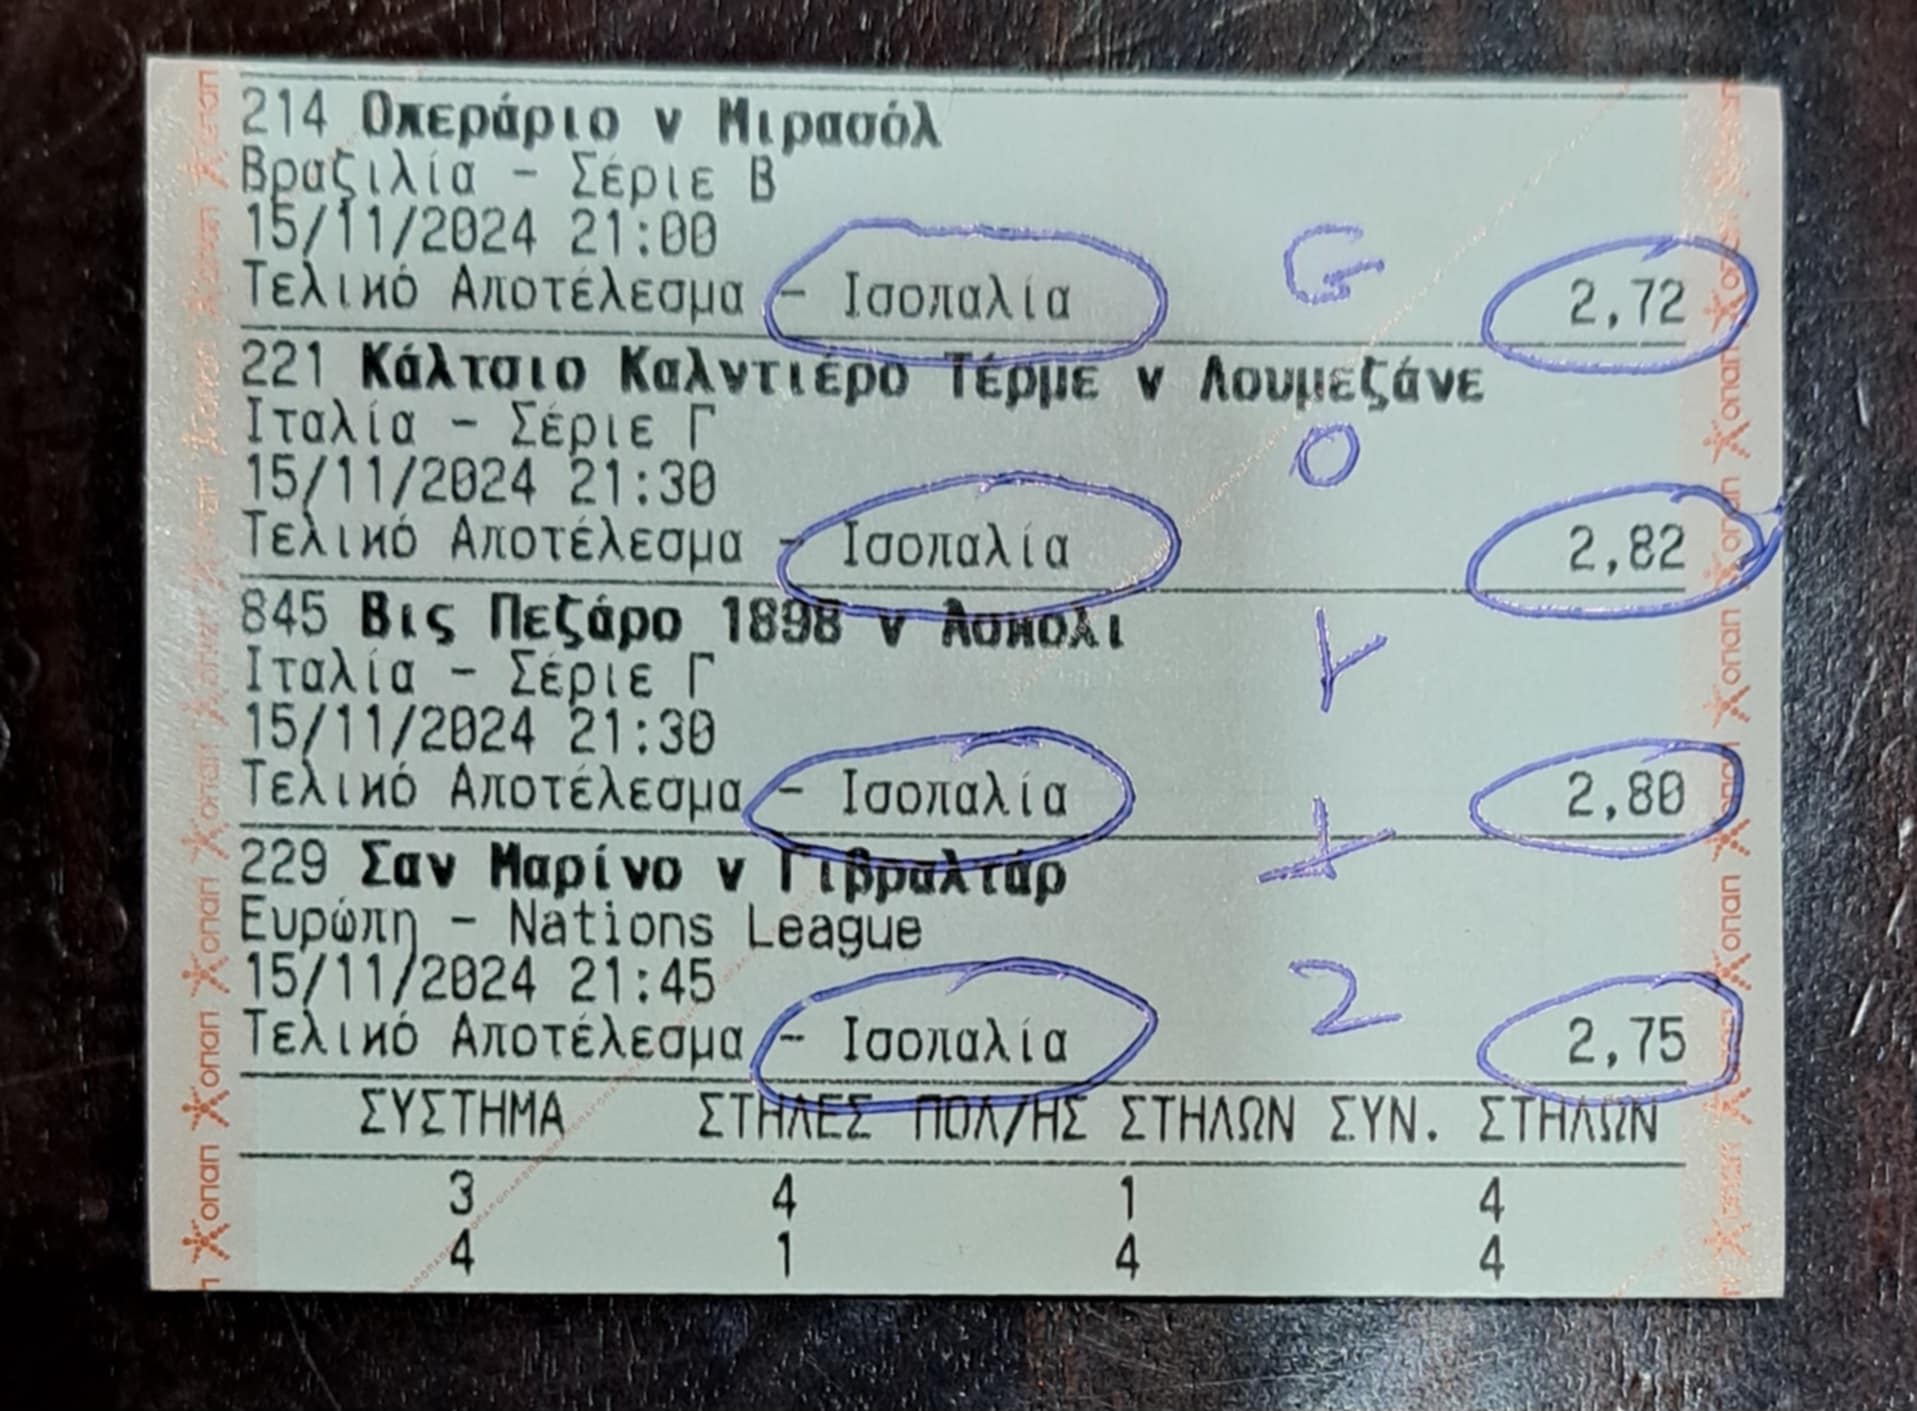 214 Οπεράριο v Μιρασόλ
Βραζιλία - Σέριε Β
15/11/2024 21:00
Τελικό Αποτέλεσμα - Ισοπαλία G 2,72
221 Κάλτσιο Καλντιέρο Τέρμε v Λουμεζάνε
Ιταλία - Σέριε Γ O
15/11/2024 21:30
Τελικό Αποτέλεσμα - Ισοπαλία 2,82
845 Βις Πεζάρο 1898 v Ασκολι
Ιταλία - Σέριε Γ
15/11/2024 21:30
Τελικό Αποτέλεσμα - Ισοπαλία 2,80
229 Σαν Μαρίνο v Γιβραλτάρ
Ευρώπη - Nations League
15/11/2024 21:45 2
Τελικό Αποτέλεσμα - Ισοπαλία 2,75
ΣΥΣΤΗΜΑ ΣΤΗΛΕΣ ΠΟΛ/ΗΣ ΣΤΗΛΩΝ ΣΥΝ. ΣΤΗΛΩΝ
3 4 1 4
4 1 4 4
οπαπ οπαπ οπαπ οπαπ